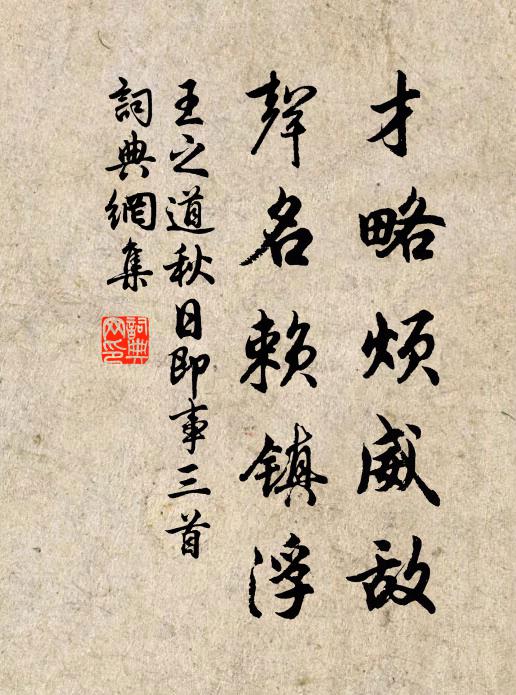 才略煩威敌
聲名賴鎮浮
王之道秋日即事三首
詞典網集
詞典
网印